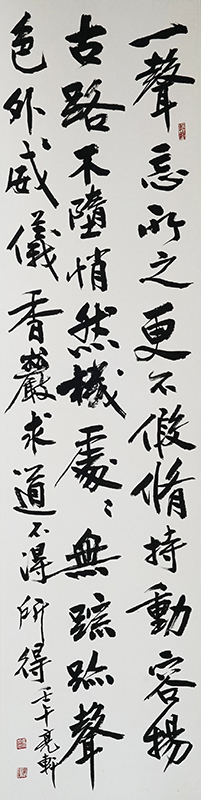 一聲忘所之更不假脩持動容揚
古路不墮悄然機處〻無踪跡聲
色外威儀香巖求道不得所得壬午亮軒